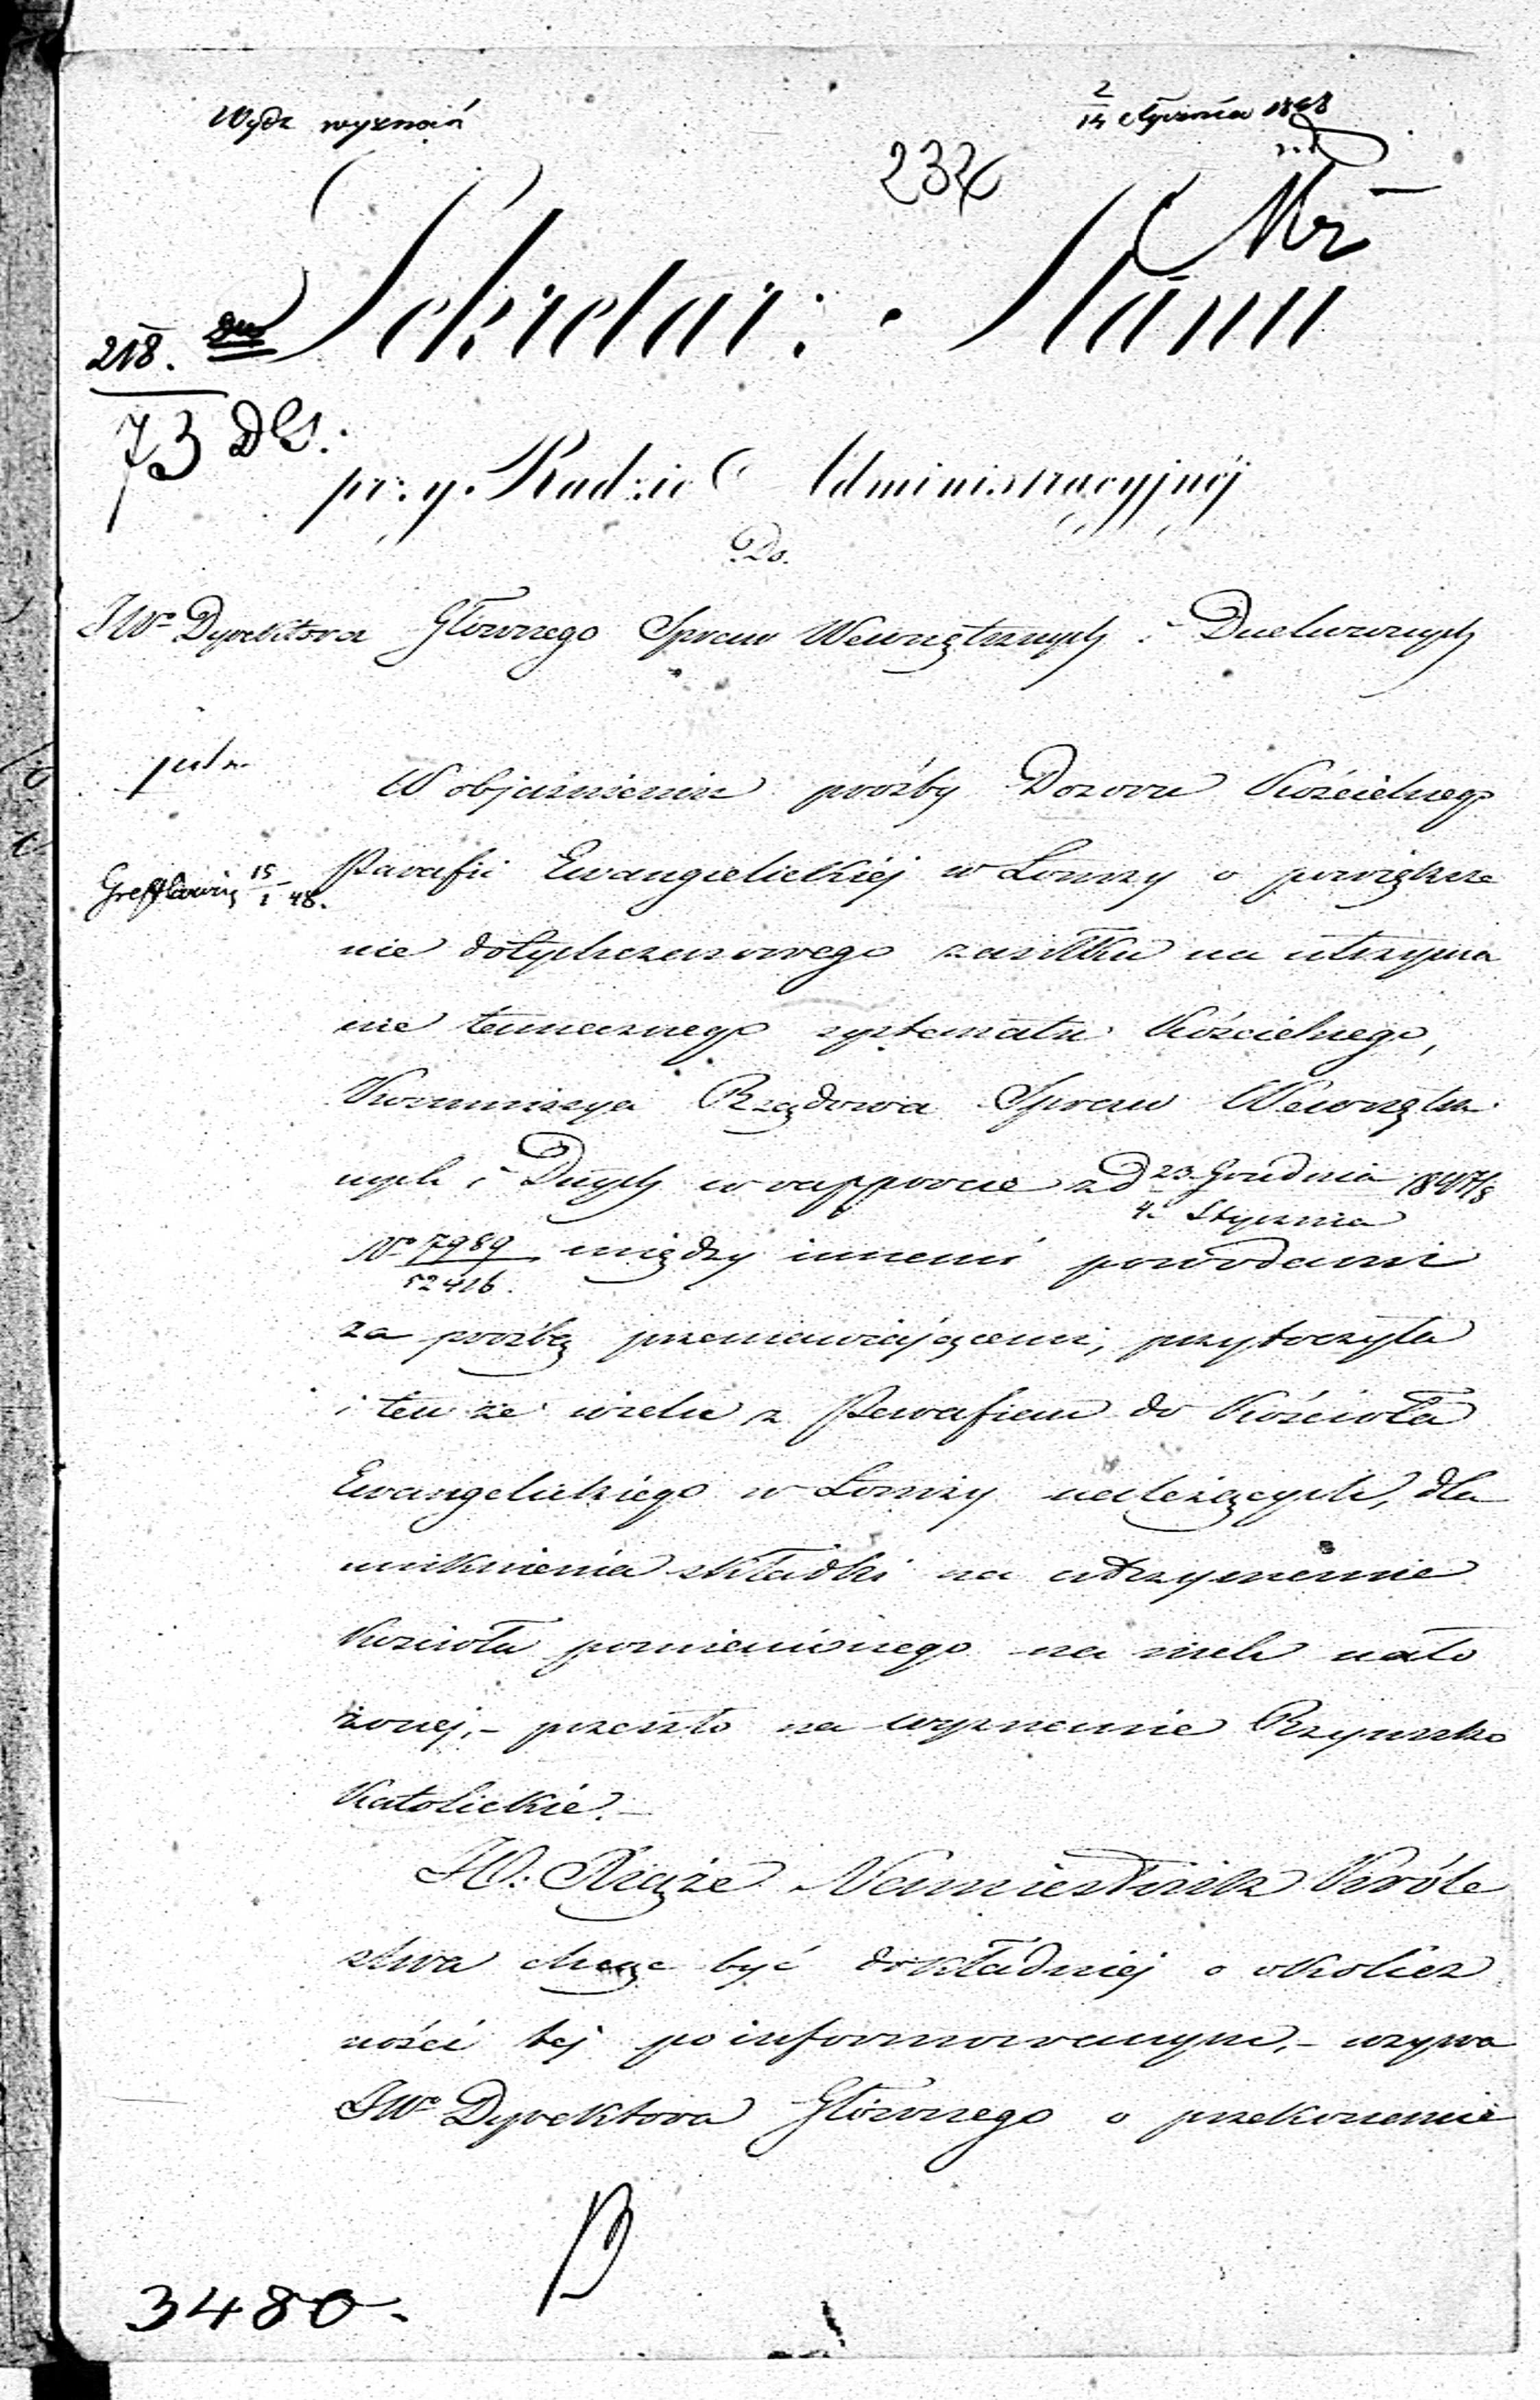 Wydz wyznań
2/14 Stycznia 1848
232
Sekretarz Stanu
218.
73
przy Radzie Administracyjnéj
Do
JWo Dyrektora Głównego Spraw Wewnętrznych i Duchownych
W objaśnieniu prośby Dozoru Kościelnego
15/1 48.
Parafii Ewangielickiéj w Łomży o powiększe
nie dotychczasowego zasiłku na utrzyma
nie tamecznego systematu Kościelnego,
Kommissya Rządowa Spraw Wewnętrz
nych i Dnych w rapporcie z d 23 Grudnia / 4 Stycznia 1847/8
No 7989/52416. między innemi powodami
za prośbą przemawiającemi, przytoczyła
i ten że wielu z Parafian do Kościoła
Ewangelickiego w Łomży należących, dla
uniknienia składki na utrzymanie
Kościoła pomienionego na nich nało
żonej, - przeszło na wyznanie Rzymsko
Katolickie. -
JO. Xiąże Namiestnik Króle
stwa chcąc być dokładniej o okolicz
ności tej poinformowanym, - wzywa
JWo Dyrektora Głównego o przekonanie
3480.